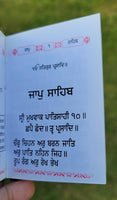 ਜਾਪੁ ੧ ਸਾਹਿਬ
ੴ ਸਤਿਗੁਰ ਪ੍ਰਸਾਦਿ॥
ਜਾਪੁ ਸਾਹਿਬ
ਸ੍ਰੀ ਮੁਖਵਾਕ ਪਾਤਿਸਾਹੀ ੧੦
ਛਪੈ ਛੰਦ॥ ਤ੍ਵ ਪ੍ਰਸਾਦਿ॥
ਚੱਕ੍ਰ ਚਿਹਨ ਅਰੁ ਬਰਨ ਜਾਤਿ
ਅਰੁ ਪਾਤਿ ਨਹਿਨ ਜਿਹ॥
ਰੂਪ ਰੰਗ ਅਰੁ ਰੇਖ ਭੇਖ